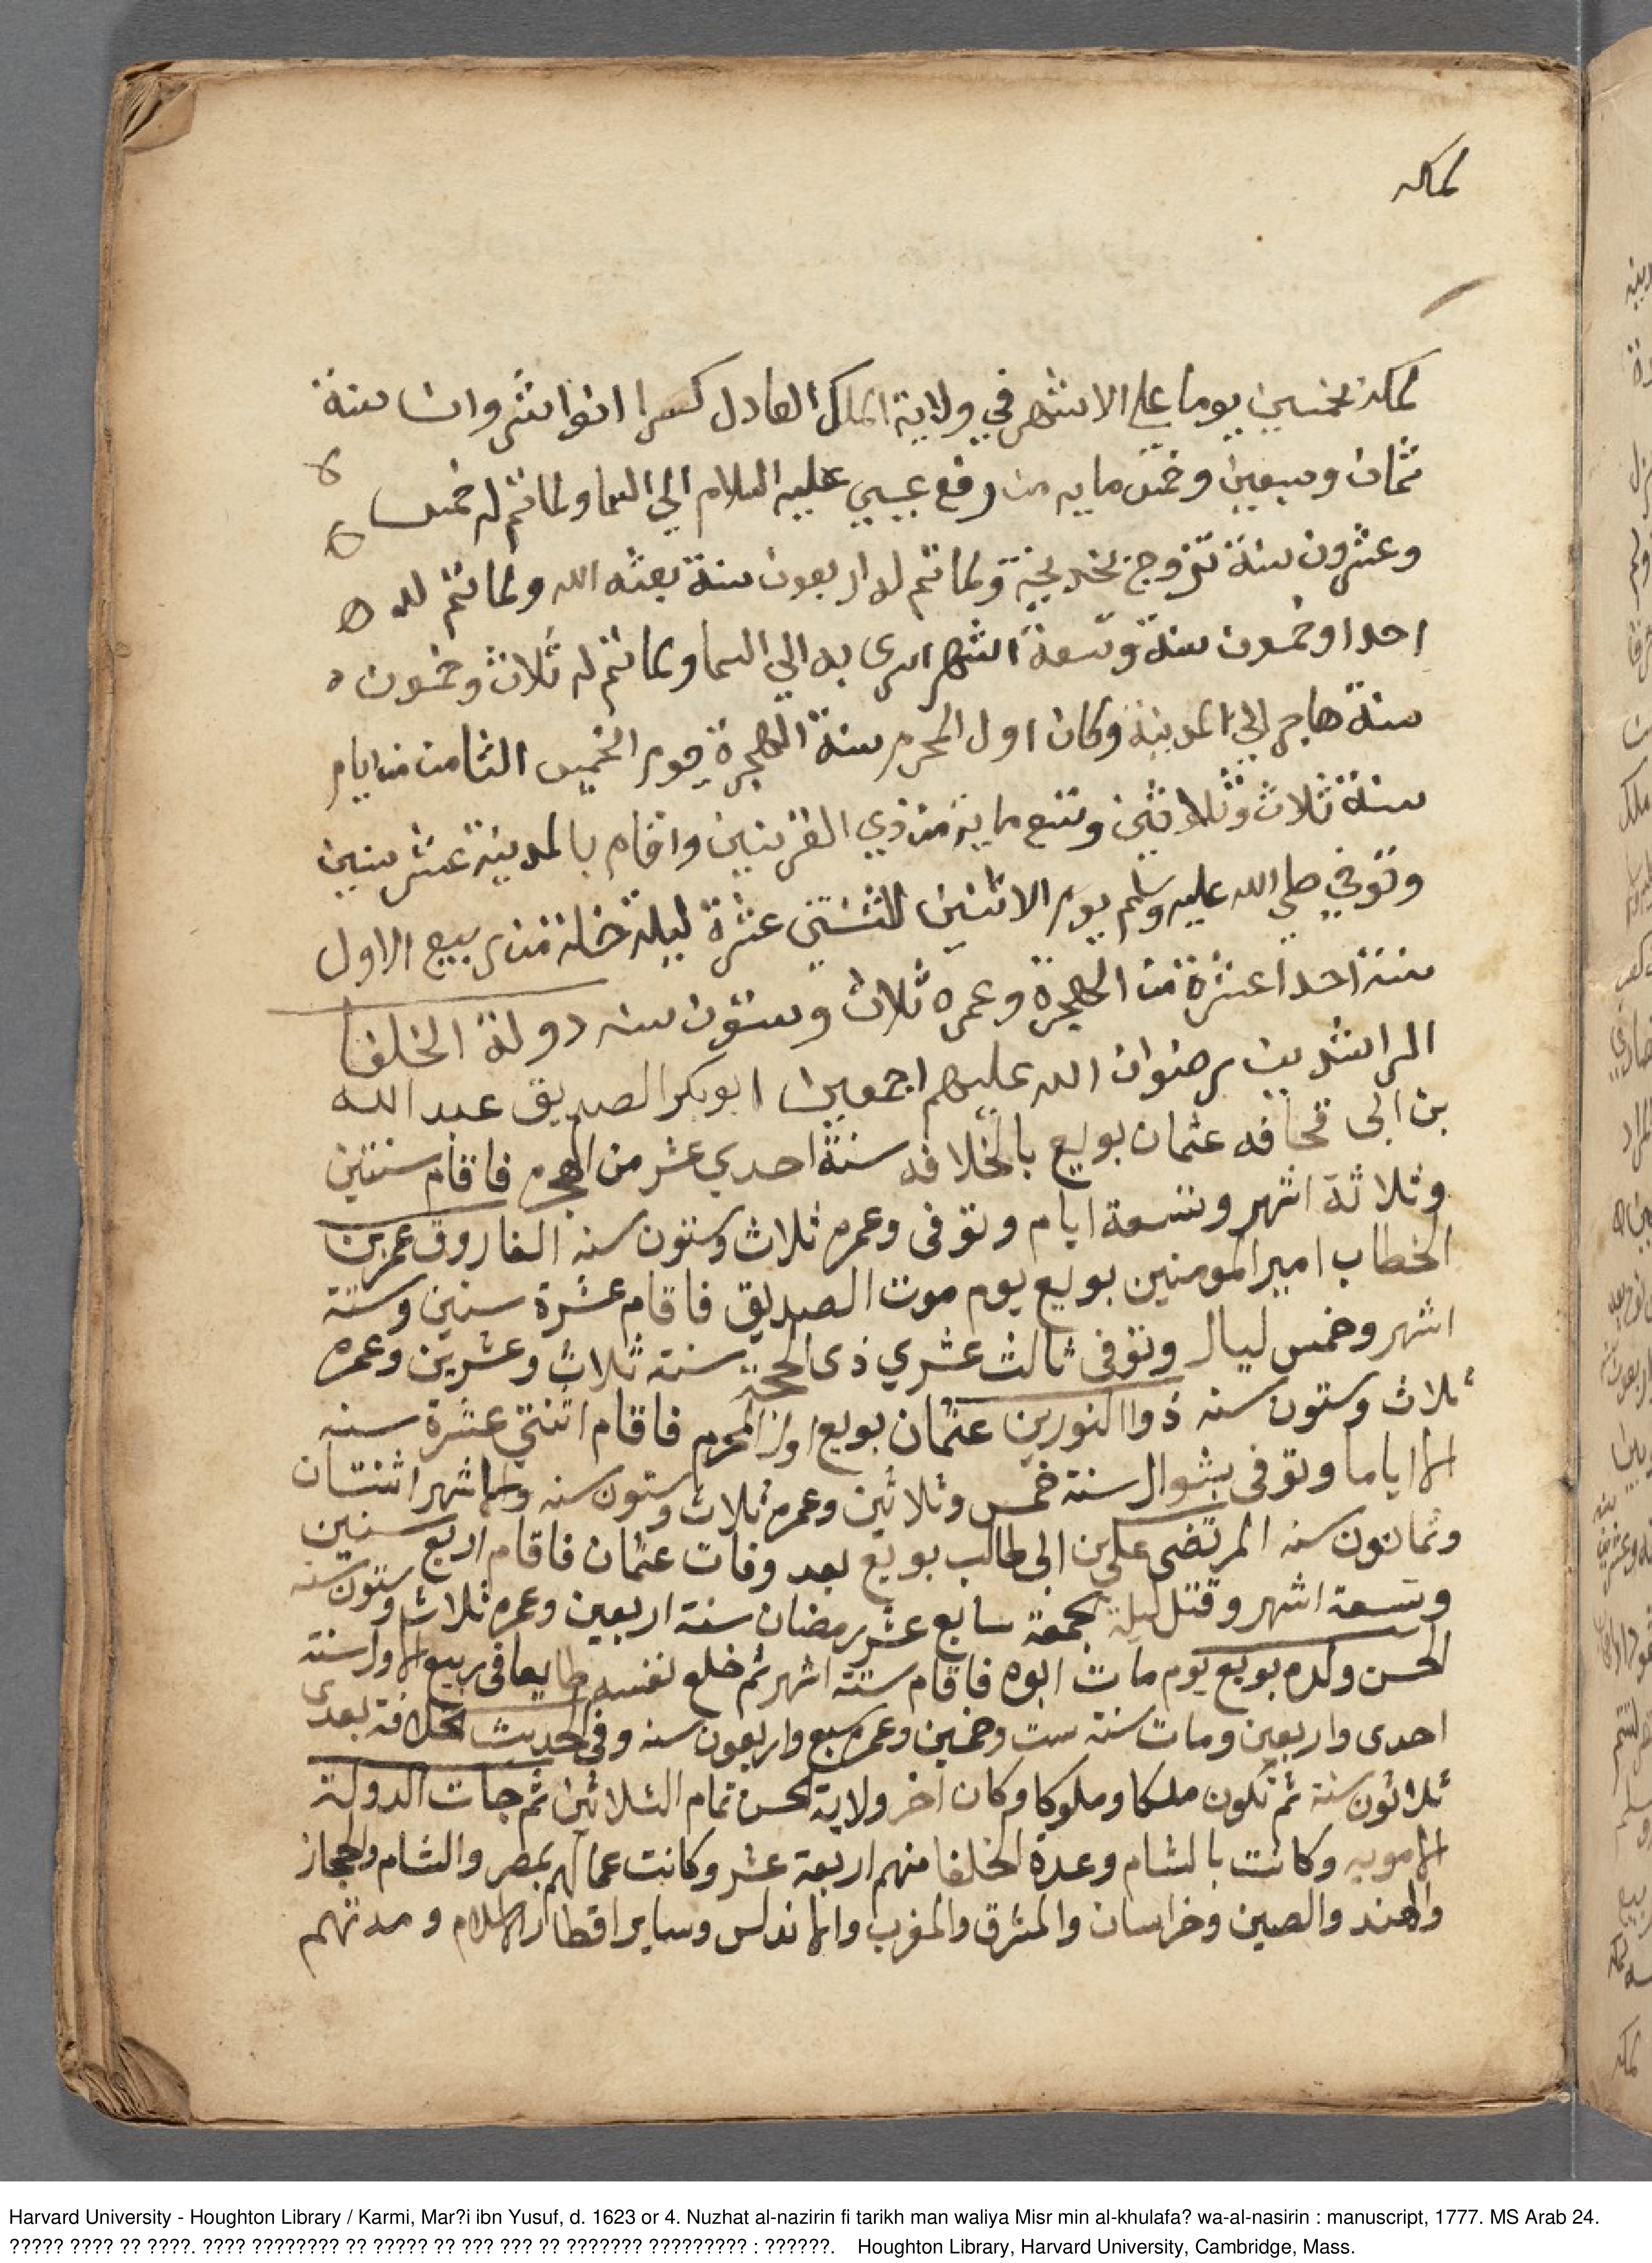 لمكه
لمكه بخمسين يوما علي الاشهر في ولاية الملك العادل كسرا انوا شروان سنة
ثمان وسبعين وخمس مايه من رفع عيسي عليه السلام الي السما ولما تم له خمس
وعشرون سنة تزوج بخديجة ولما تم له اربعون سنة بعثه الله ولما تم له
احدا وخمسون سنة وتسعة اشهر اسرى به الي السما ولما تم له ثلاث وخمسون
سنة هاجر الي المدينة وكان اول المحرم سنة الهجرة يوم الخميس الثامن من ايام
سنة ثلاث وثلاثين وتسع ماية من ذي القرنين واقام بالمدينة عشر سنين
وتوفي صلي الله عليه وسلم يوم الاثنين لثنتي عشرة ليلة خلة من ربيع الاول
سنة احدا عشرة من الهجرة وعمره ثلاث وستون سنه دولة الخلفا
الراشدين رضوان الله عليهم اجمعين ابوبكر الصديق عبد الله
بن ابى قحافه عثمان بويع بالخلافه سنة احدي عشر من الهجره فاقام سنتين
وثلاثة اشهر وتسعة ايام وتوفى وعمره ثلاث وستون سنه الفاروق عمر بن
الخطاب امير المومنين بويع يوم موت الصديق فاقام عشرة سنين وستة
اشهر وخمس ليال وتوفى ثالث عشري ذى الحجة سنة ثلاث وعشرين وعمره
ثلاث وستون سنه ذوا النورين عثمان بويع اول المحرم فاقام اثنتي عشرة سنه
الا اياما وتوفى بشوال سنة خمس وثلاثين وعمره ثلاث وستون سنه والاشهر اثنتان
وثمانون سنه المرتضى علي بن ابى طالب بويع بعد وفات عثمان فاقام اربع سنين
وتسعة اشهر وقتل ليلة الجمعة سابع عشر رمضان سنة اربعين وعمره ثلاث وستون سنه
الحسن ولده بويع يوم مات ابوه فاقام ستة اشهر ثم خلع نفسه طايعا فى ربيع الاول سنة
احدى واربعين ومات سنة ست وخمسين وعمره سبع واربعون سنه وفى الحديث الخلافة بعدى
ثلاثون سنة ثم تكون ملكا وملوكا وكان اخر ولاية الحسن تمام الثلاثين ثم جات الدولة
الامويه وكانت بالشام وعدة الخلفا منهم اربعة عشر وكانت عمالهم بمصر والشام والحجاز
والهند والصين وخراسان والمشرق والمغرب والاندلس وساير اقطار الاسلام ومدتهم
Harvard University - Houghton Library / Karmi, Mar?i ibn Yusuf, d. 1623 or 4. Nuzhat al-nazirin fi tarikh man waliya Misr min al-khulafa? wa-al-nasirin : manuscript, 1777. MS Arab 24.
????? ???? ?? ????. ???? ???????? ?? ????? ?? ??? ??? ?? ??????? ????????? : ??????. Houghton Library, Harvard University, Cambridge, Mass.